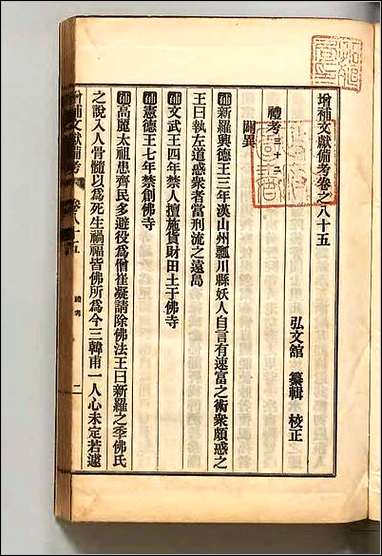 增補文獻備考卷之八十五
弘文館 纂輯 校正
禮考三十二
闢異
補新羅興德王三年漢山州瓢川縣妖人自言有速富之術衆頗惑之
王曰執左道惑衆者當刑流之遠島
補文武王四年禁人擅施貨財田土于佛寺
補憲德王七年禁創佛寺
補高麗太祖患齊民多避役爲僧崔凝請除佛法王曰新羅之季佛氏
之說入人骨髓以爲死生禍福皆佛所爲今三韓甫一人心未定若遽
增補文獻備考 卷八十五 禮考 一